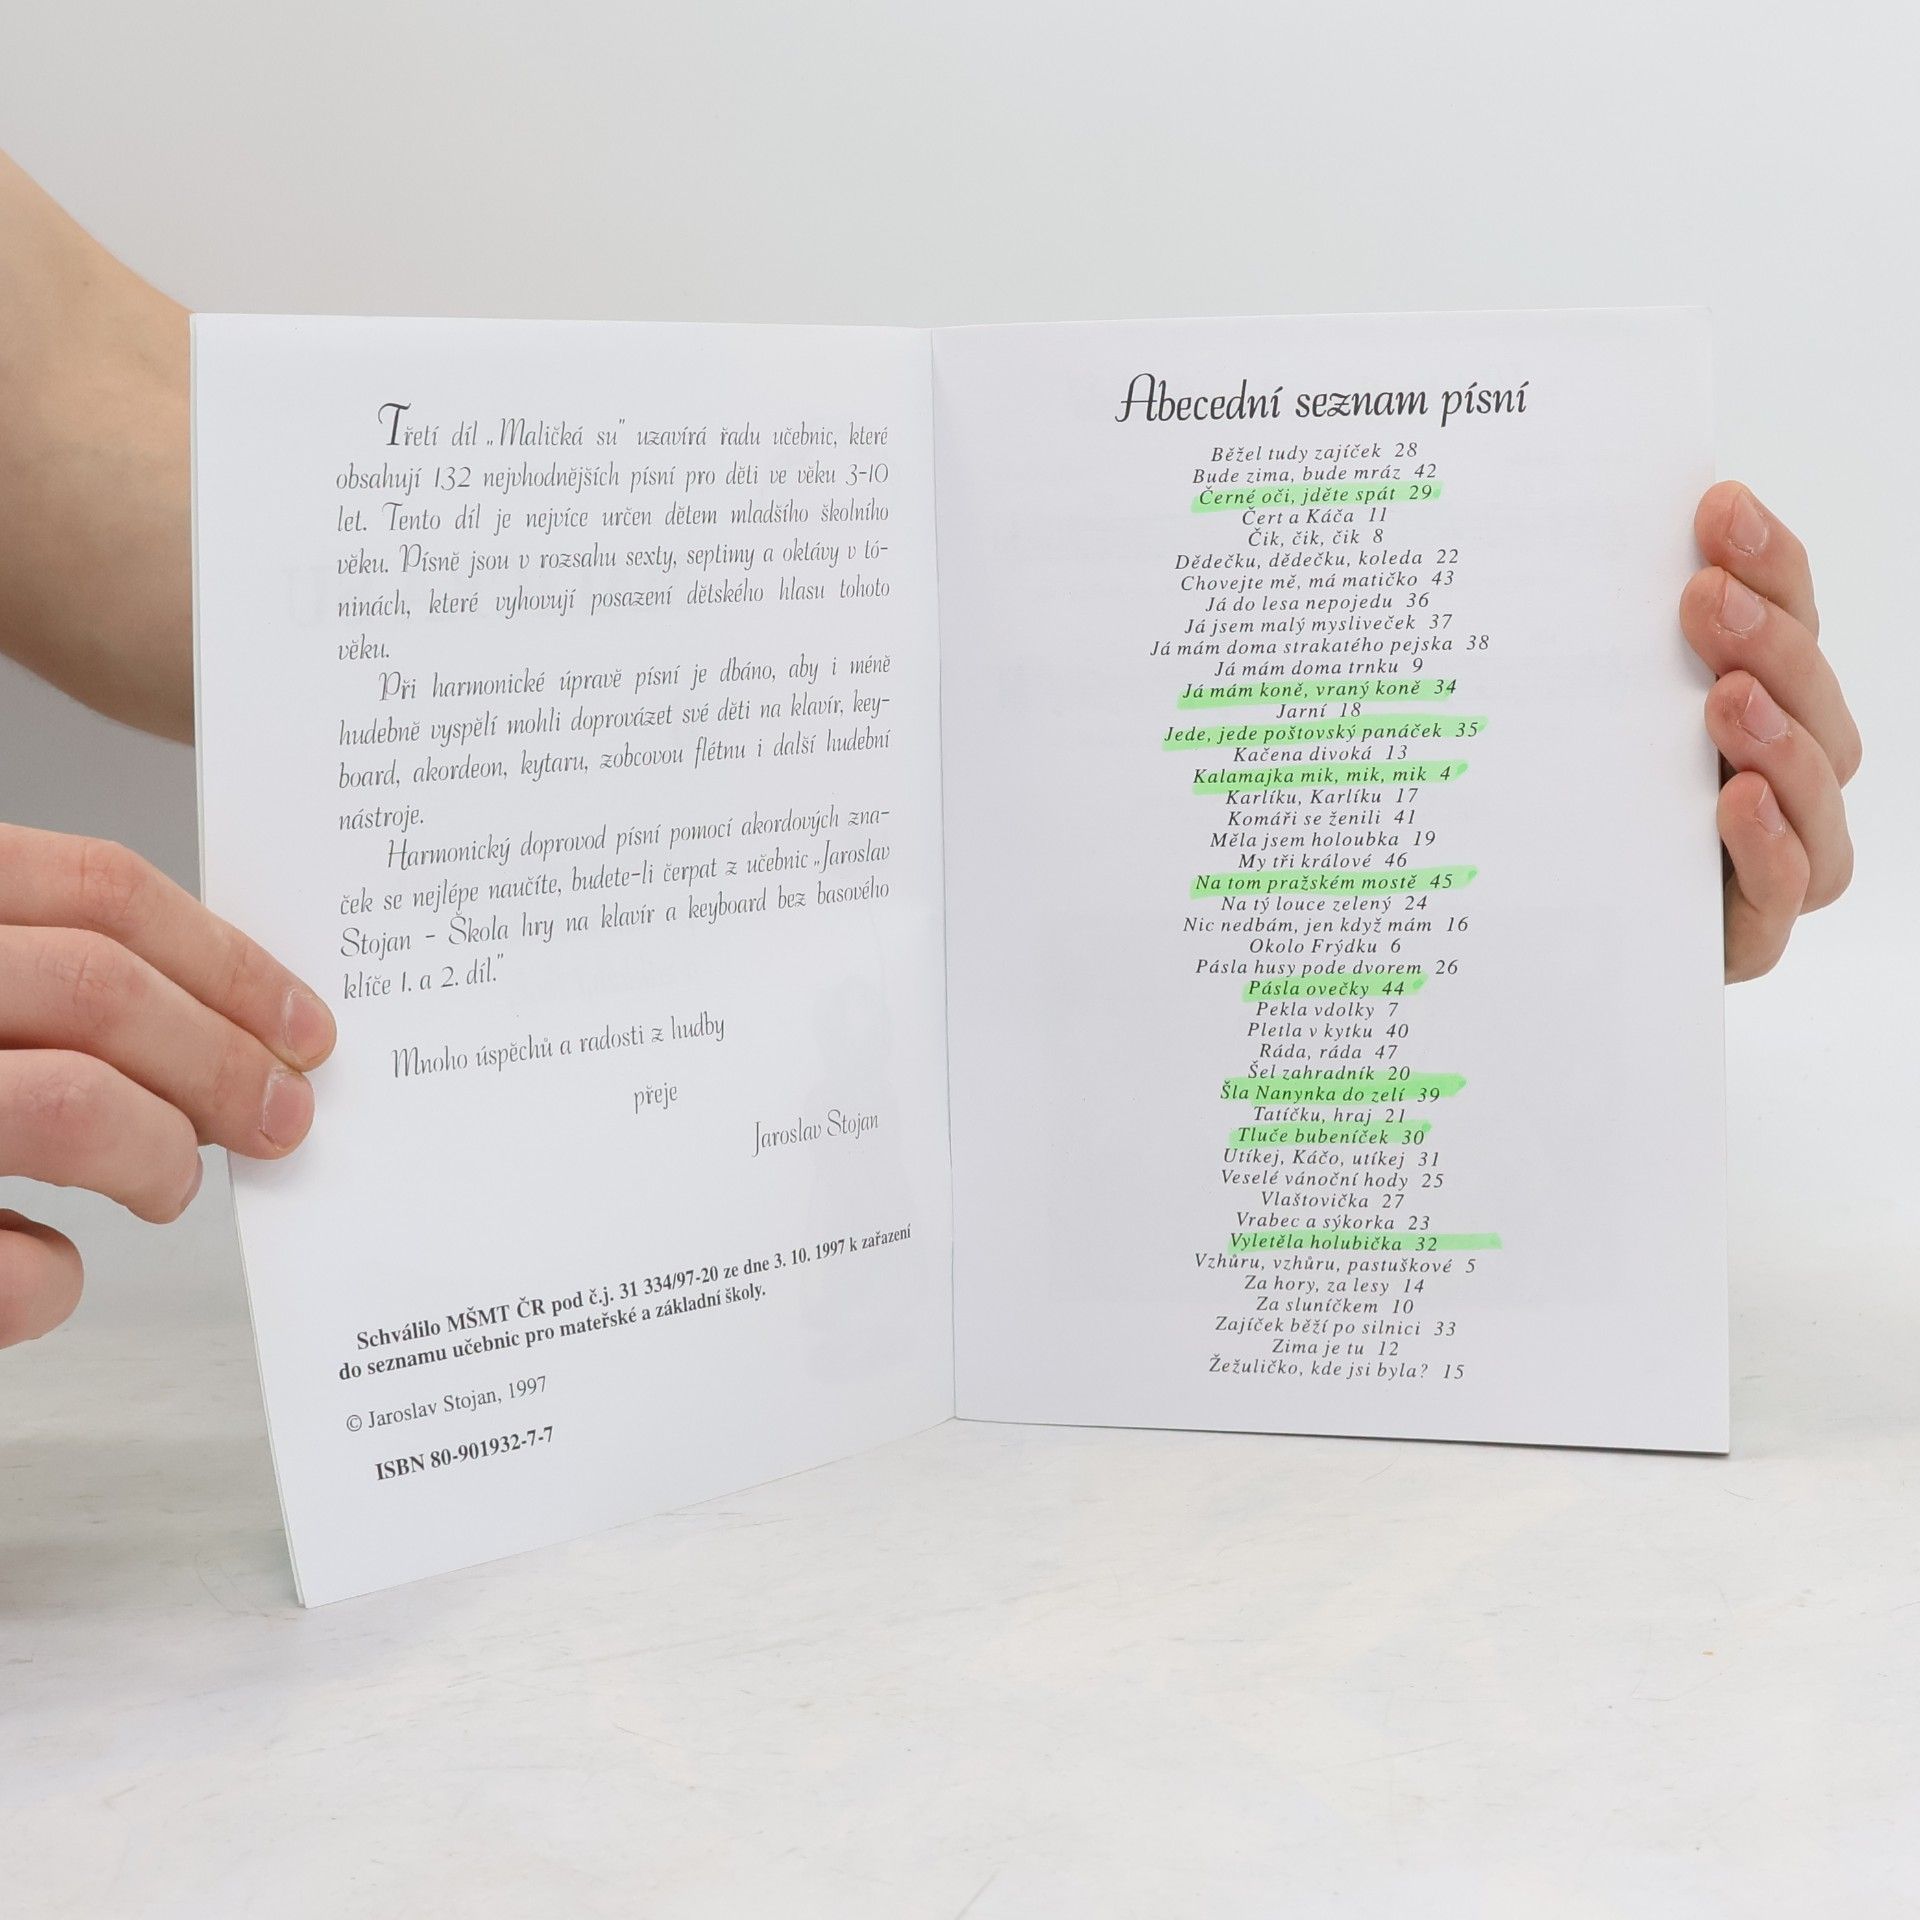 Třetí díl „Maličká su" uzavírá řadu učebnic, které
obsahují 132 nejvhodnějších písní pro děti ve věku 3-10
let. Tento díl je nejvíce určen dětem mladšího školního
věku. Písně jsou v rozsahu sexty, septimy a oktávy v tó-
ninách, které vyhovují posazení dětského hlasu tohoto
věku.
Při harmonické úpravě písní je dbáno, aby i méně
hudebně vyspělí mohli doprovázet své děti na klavír, key-
board, akordeon, kytaru, zobcovou flétnu i další hudební
nástroje.
Harmonický doprovod písní pomocí akordových zna-
ček se nejlépe naučíte, budete-li čerpat z učebnic „Jaroslav
Stojan - Škola hry na klavír a keyboard bez basového
klíče 1. a 2. díl."
Mnoho úspěchů a radosti z hudby
přeje
Jaroslav Stojan
Schválilo MŠMT ČR pod č.j. 31 334/97-20 ze dne 3. 10. 1997 k zařazení
do seznamu učebnic pro mateřské a základní školy.
© Jaroslav Stojan, 1997
ISBN 80-901932-7-7
Abecední seznam písní
Běžel tudy zajíček 28
Bude zima, bude mráz 42
Černé oči, jděte spát 29
Čert a Káča 11
Čik, čik, čik 8
Dědečku, dědečku, koleda 22
Chovejte mě, má matičko 43
Já do lesa nepojedu 36
Já jsem malý mysliveček 37
Já mám doma strakatého pejska 38
Já mám doma trnku 9
Já mám koně, vraný koně 34
Jarní 18
Jede, jede poštovský panáček 35
Kačena divoká 13
Kalamajka mik, mik, mik 4
Karlíku, Karlíku 17
Komáři se ženili 41
Měla jsem holoubka 19
My tři králové 46
Na tom pražském mostě 45
Na tý louce zelený 24
Nic nedbám, jen když mám 16
Okolo Frýdku 6
Pásla husy pode dvorem 26
Pásla ovečky 44
Pekla vdolky 7
Pletla v kytku 40
Ráda, ráda 47
Šel zahradník 20
Šla Nanynka do zelí 39
Tatíčku, hraj 21
Tluče bubeníček 30
Utíkej, Káčo, utíkej 31
Veselé vánoční hody 25
Vlaštovička 27
Vrabec a sýkorka 23
Vyletěla holubička 32
Vzhůru, vzhůru, pastuškové 5
Za hory, za lesy 14
Za sluníčkem 10
Zajíček běží po silnici 33
Zima je tu 12
Žežuličko, kde jsi byla? 15